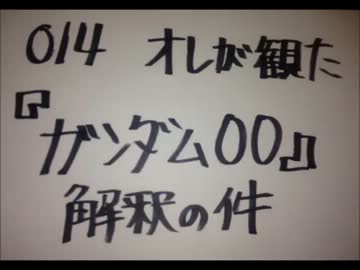 014 オレが観た
『ガンダム00』
解釈の件